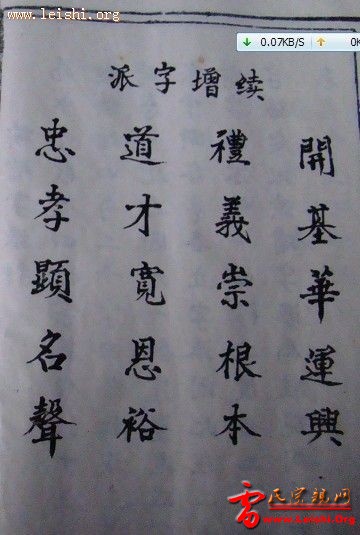 www.leishi.org
0.07KB/S
0K
续增字派
開基華運興
禮義崇根本
道才寬恩裕
忠孝顯名聲
雷氏宗親网
www.Leishi.Org